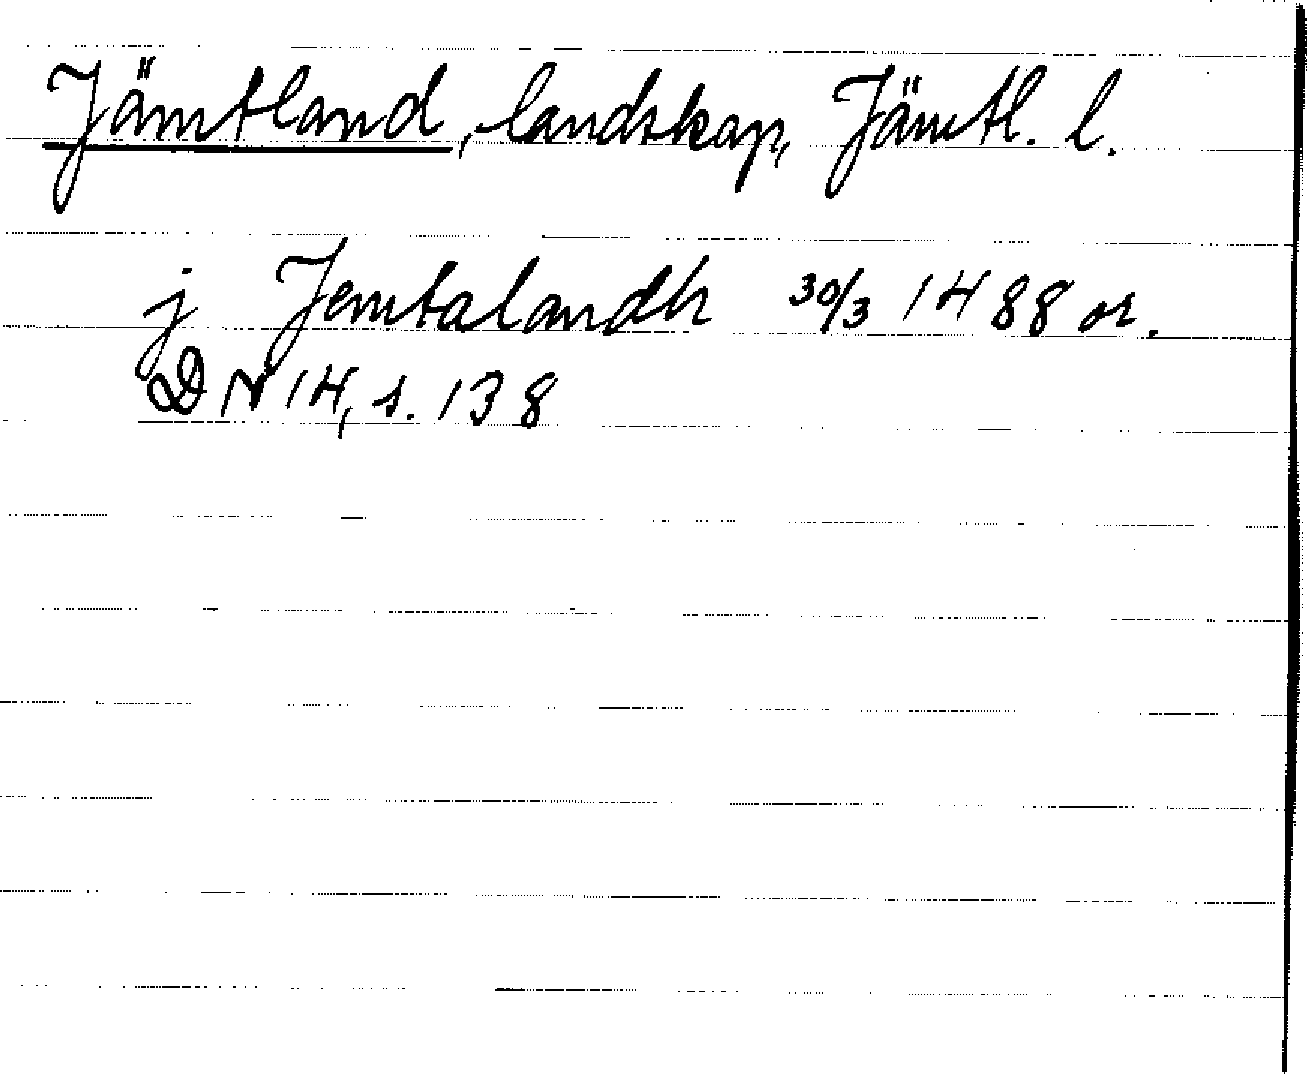 Jämtland, landskap, Jämtl. l.
j Jemtalandh 30/3 1488 or.
DN 14, s. 138